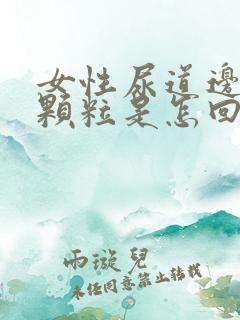 女性尿道邊
顆粒是怎回
雨漩兒
未经同意禁止转载